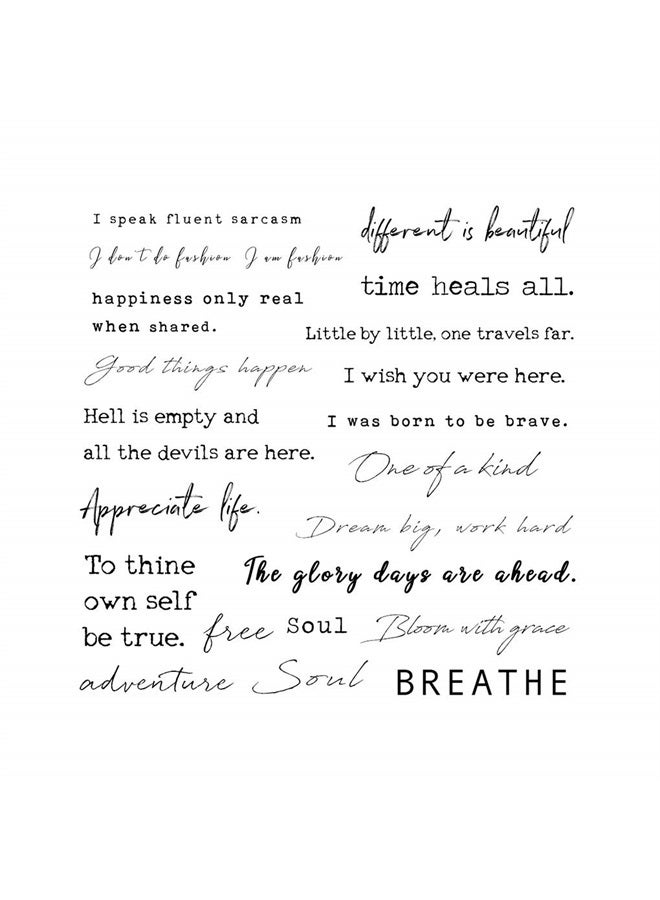 I speak fluent sarcasm
different is beautiful
I don't do fashion I am fashion
time heals all.
happiness only real
when shared.
Little by little, one travels far.
Good things happen
I wish you were here.
Hell is empty and
all the devils are here.
I was born to be brave.
One of a kind
Appreciate life.
Dream big, work hard
To thine
own self
be true.
The glory days are ahead.
free Soul
Bloom with grace
adventure Soul
BREATHE